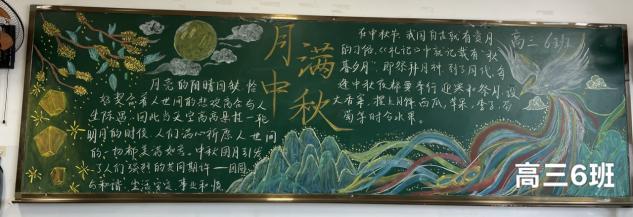 月满中秋
月亮的阴晴圆缺恰
契合着人世间的悲欢离合与人
生际遇。因此当天空高高悬挂一轮
明月的时候，人们满心祈愿人世间
的一切都美满如意。中秋圆月引发
了人们强烈的共同期许——团圆
与和谐、生活安宁、事业和悦
在中秋节，我国自古就有赏月
的习俗，《礼记》中就记载有“秋
暮夕月”，即祭拜月神。到了周代，每
逢中秋夜都要举行迎寒和祭月，设
大香案，摆上月饼、西瓜、苹果、李子、葡
萄等时令水果。
高三6班
高三6班